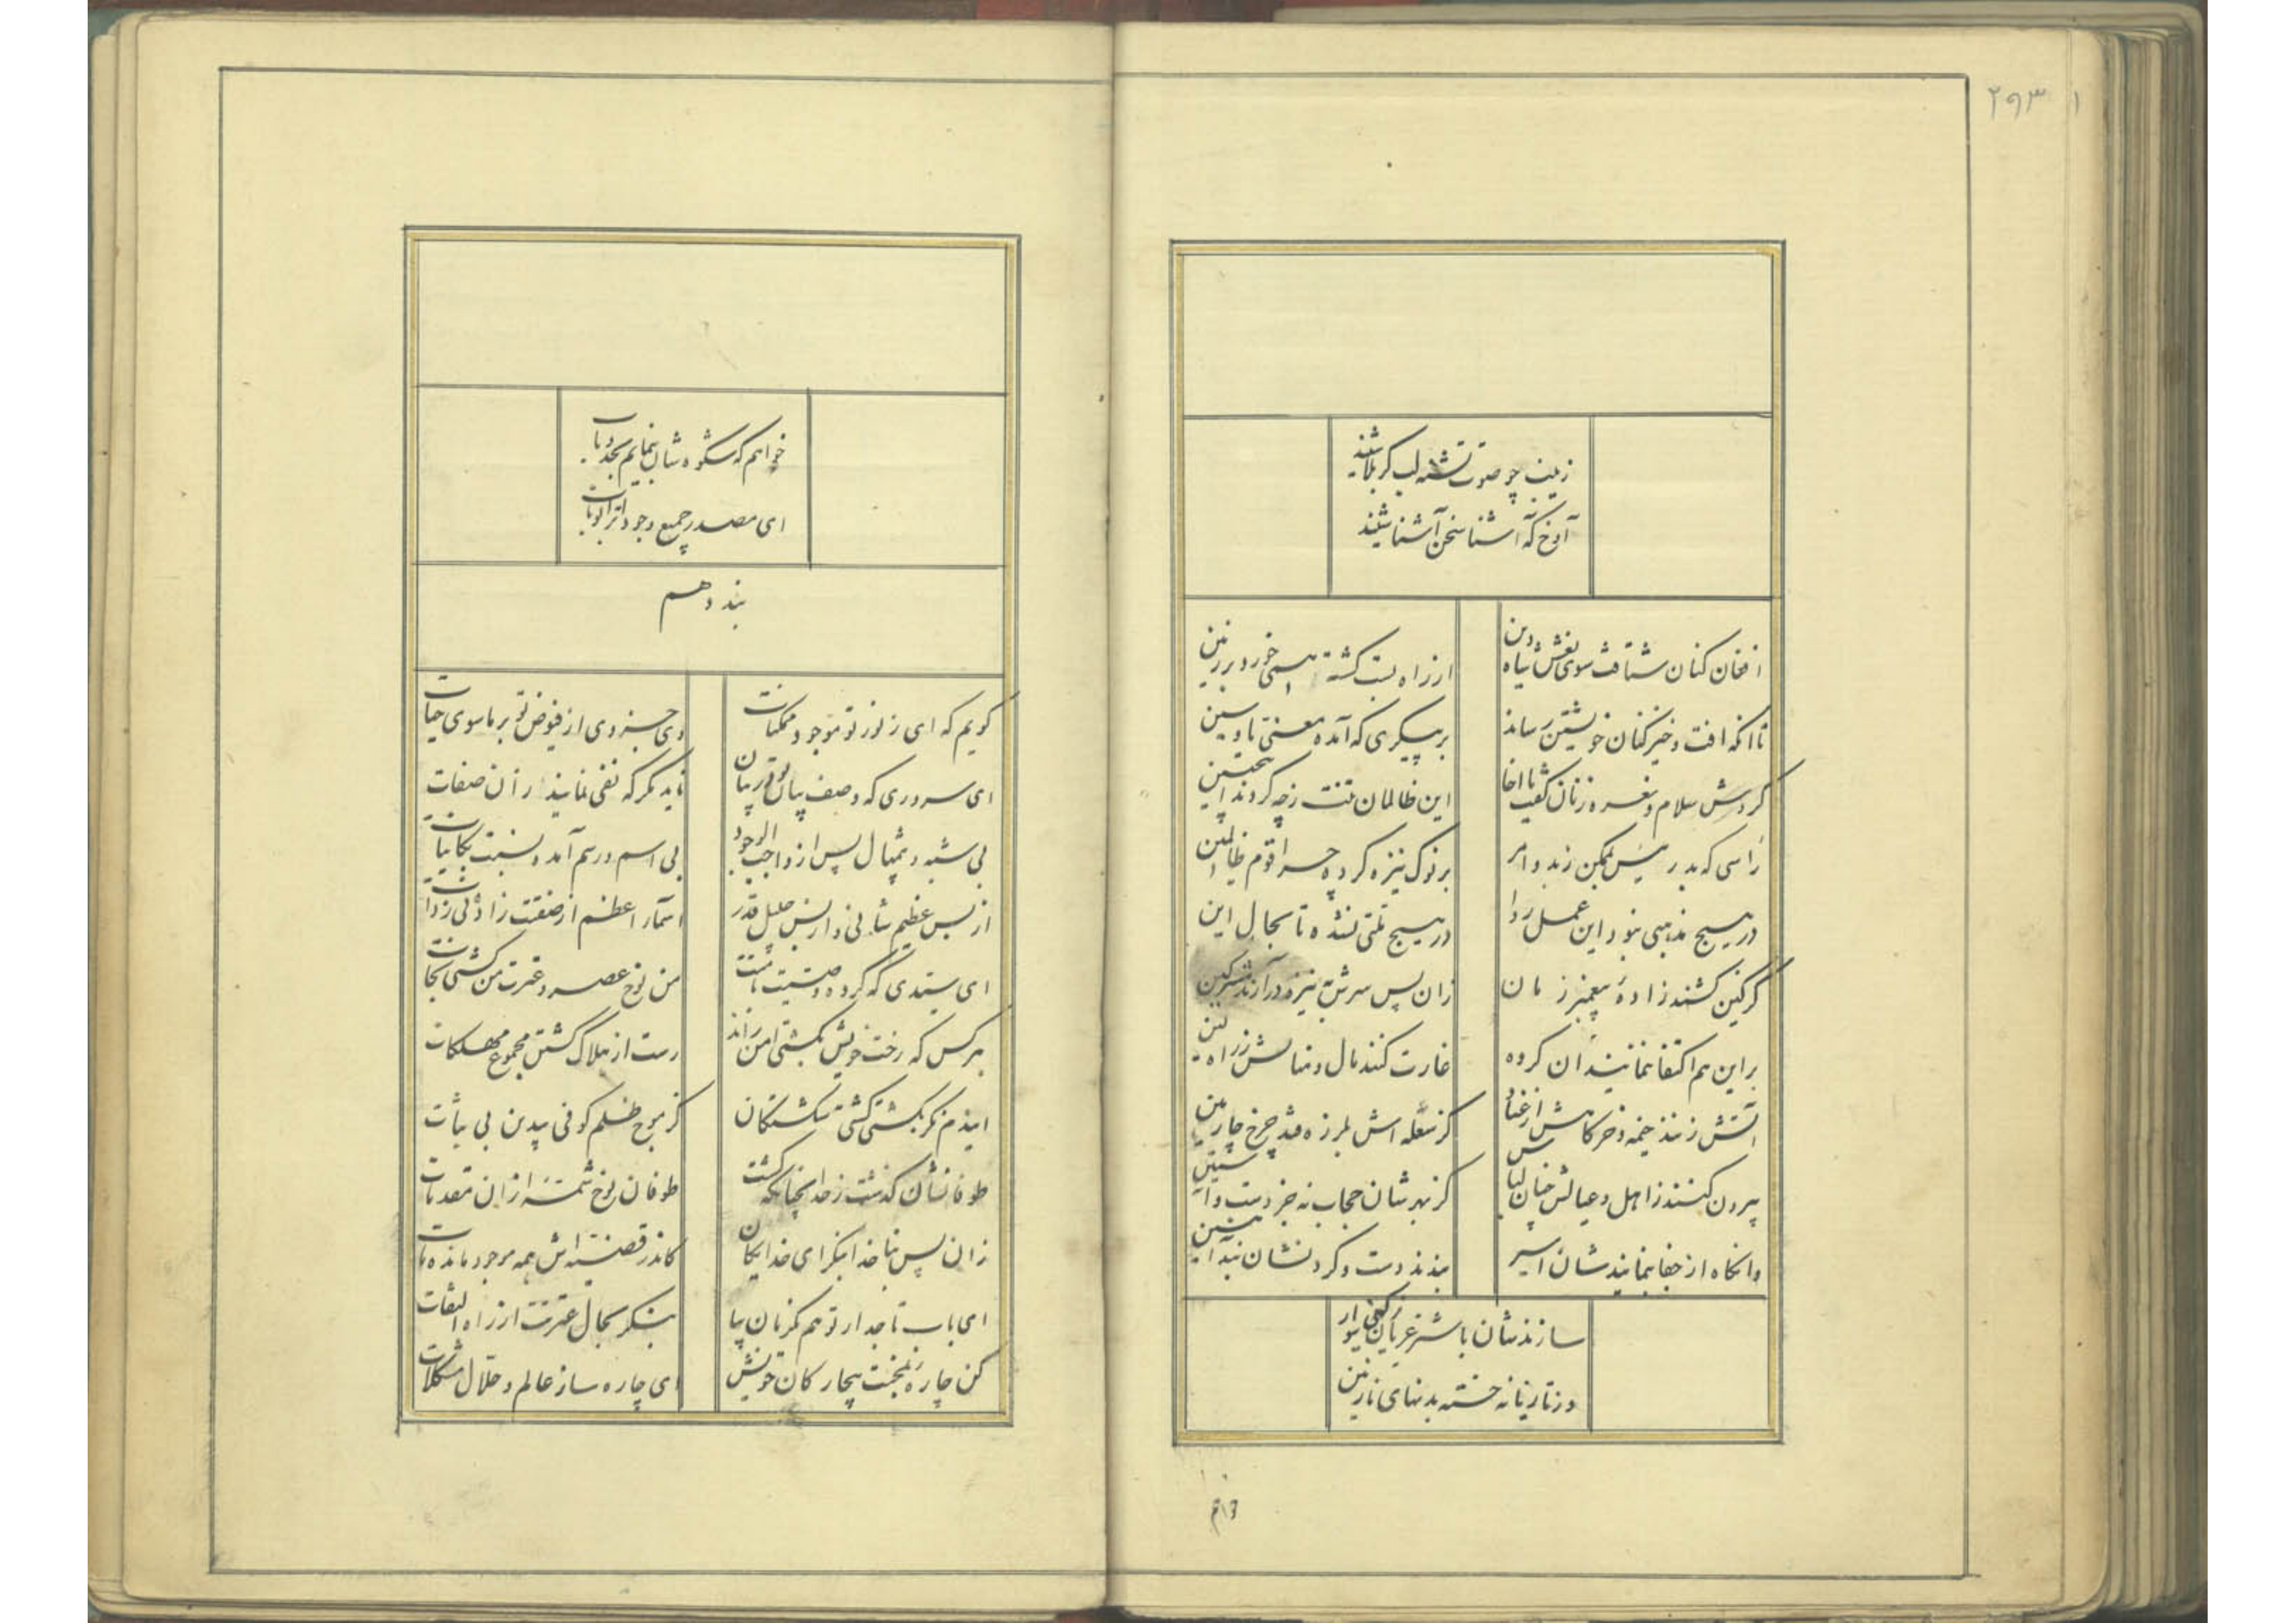 ۲۹۳ ۱
زینب چو صوت تشنه لب کربلا شنید
آوخ که آشنا سخن آشنا شنید
افغان کنان شتافت سوی نعش شاه دین
از زاه بست گشته همی خورد بر زمین
تا آنکه افت و خیز کنان خویشتن رساند
بر پیکری که آمده معنی تا و سین
کردش سلام و نعره زنان گفت یا اخا
این ظالمان تنت ز چه کردند اینچنین
رأسی که بد رئیس بممکن ز بد و امر
بر نوک نیزه کرده چرا قوم ظالمین
در هیچ مذهبی نبود این عمل روا
در هیچ ملتی نشده تا بحال این
کز کین کشند زاده پیغمبر زمان
زان پس سرش به نیزه در آرند مشرکین
بر این هم اکتفا ننمایند آن گروه
غارت کنند مال و منالش ز راه کین
آتش زنند خیمه و خرگاهش از عناد
کز شعله اش بلرزه فتد چرخ چارمین
بیرون کنند ز اهل و عیالش چنان لباس
کز بهرشان حجاب نه جز دست و آستین
وانگاه از جفا بنمایندشان اسیر
بندند دست و گردنشان بند آهنین
سازندشان باشتر عریان سوار
وز تازیانه خسته بدنهای نازنین
خواهم
خواهم که شکوه شان بنمایم بجد و باب
ای مصدر جمیع وجود ابوتراب
بند دهم
گویم که ای ز نور تو موجود ممکنات
وی جزوی از فیوض تو بر ماسوی حیات
ای سروری که وصف تو در بیان
ناید مگر که نفی نمایند از آن صفات
بی شبه و بی مثال پس از واجب الوجود
بی اسم و رسم آمد و نسبت بکاینات
از بس عظیم شانی و از بس جلیل قدر
اسماء اعظم از صفتت زاد نی ز ذات
ای سیدی که کرده وصیت بامتت
من نوح عصر و عترت من کشتی نجات
هر کس که رخت خویش بکشتی امن راند
رست از هلاک گشتن مجموع مهلکات
ایندم نگر بکشتی کشتی شکستگان
کز موج ظلم کوفی بیدین بی ثبات
طوفانشان گذشت ز حد آنچنانکه گشت
طوفان نوح شمه از آن مقدمات
زان پس بناخدا بنگر ای خدایگان
کاندر قضیه اش همه موجود مانده مات
ای باب تاجدار تو هم کز نان بیا
بنگر بحال عترتت از راه التفات
کن چاره ز بخت بیچارگان خویش
ای چاره ساز عالم و حلال مشکلات